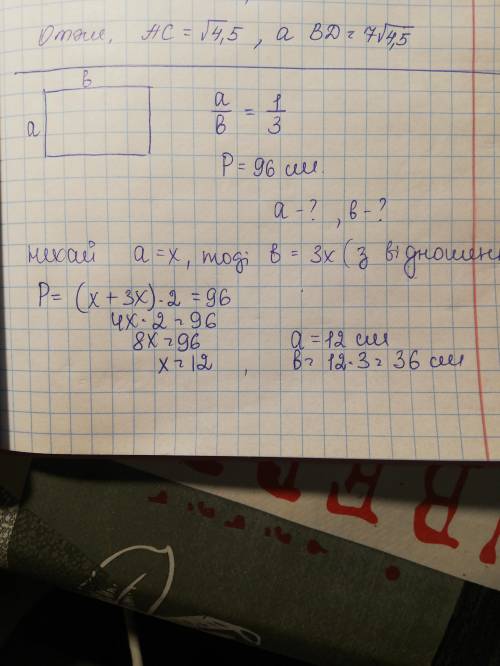 Отже, AC = √4,5 , а BD = 7√4,5
в
а
a/в = 1/3
P = 96 см.
a - ? , в - ?
нехай a = x, тоді в = 3x (з відношен
P = (x + 3x) · 2 = 96
4x · 2 = 96
8x = 96
x = 12 ,
a = 12 см
в = 12 · 3 = 36 см